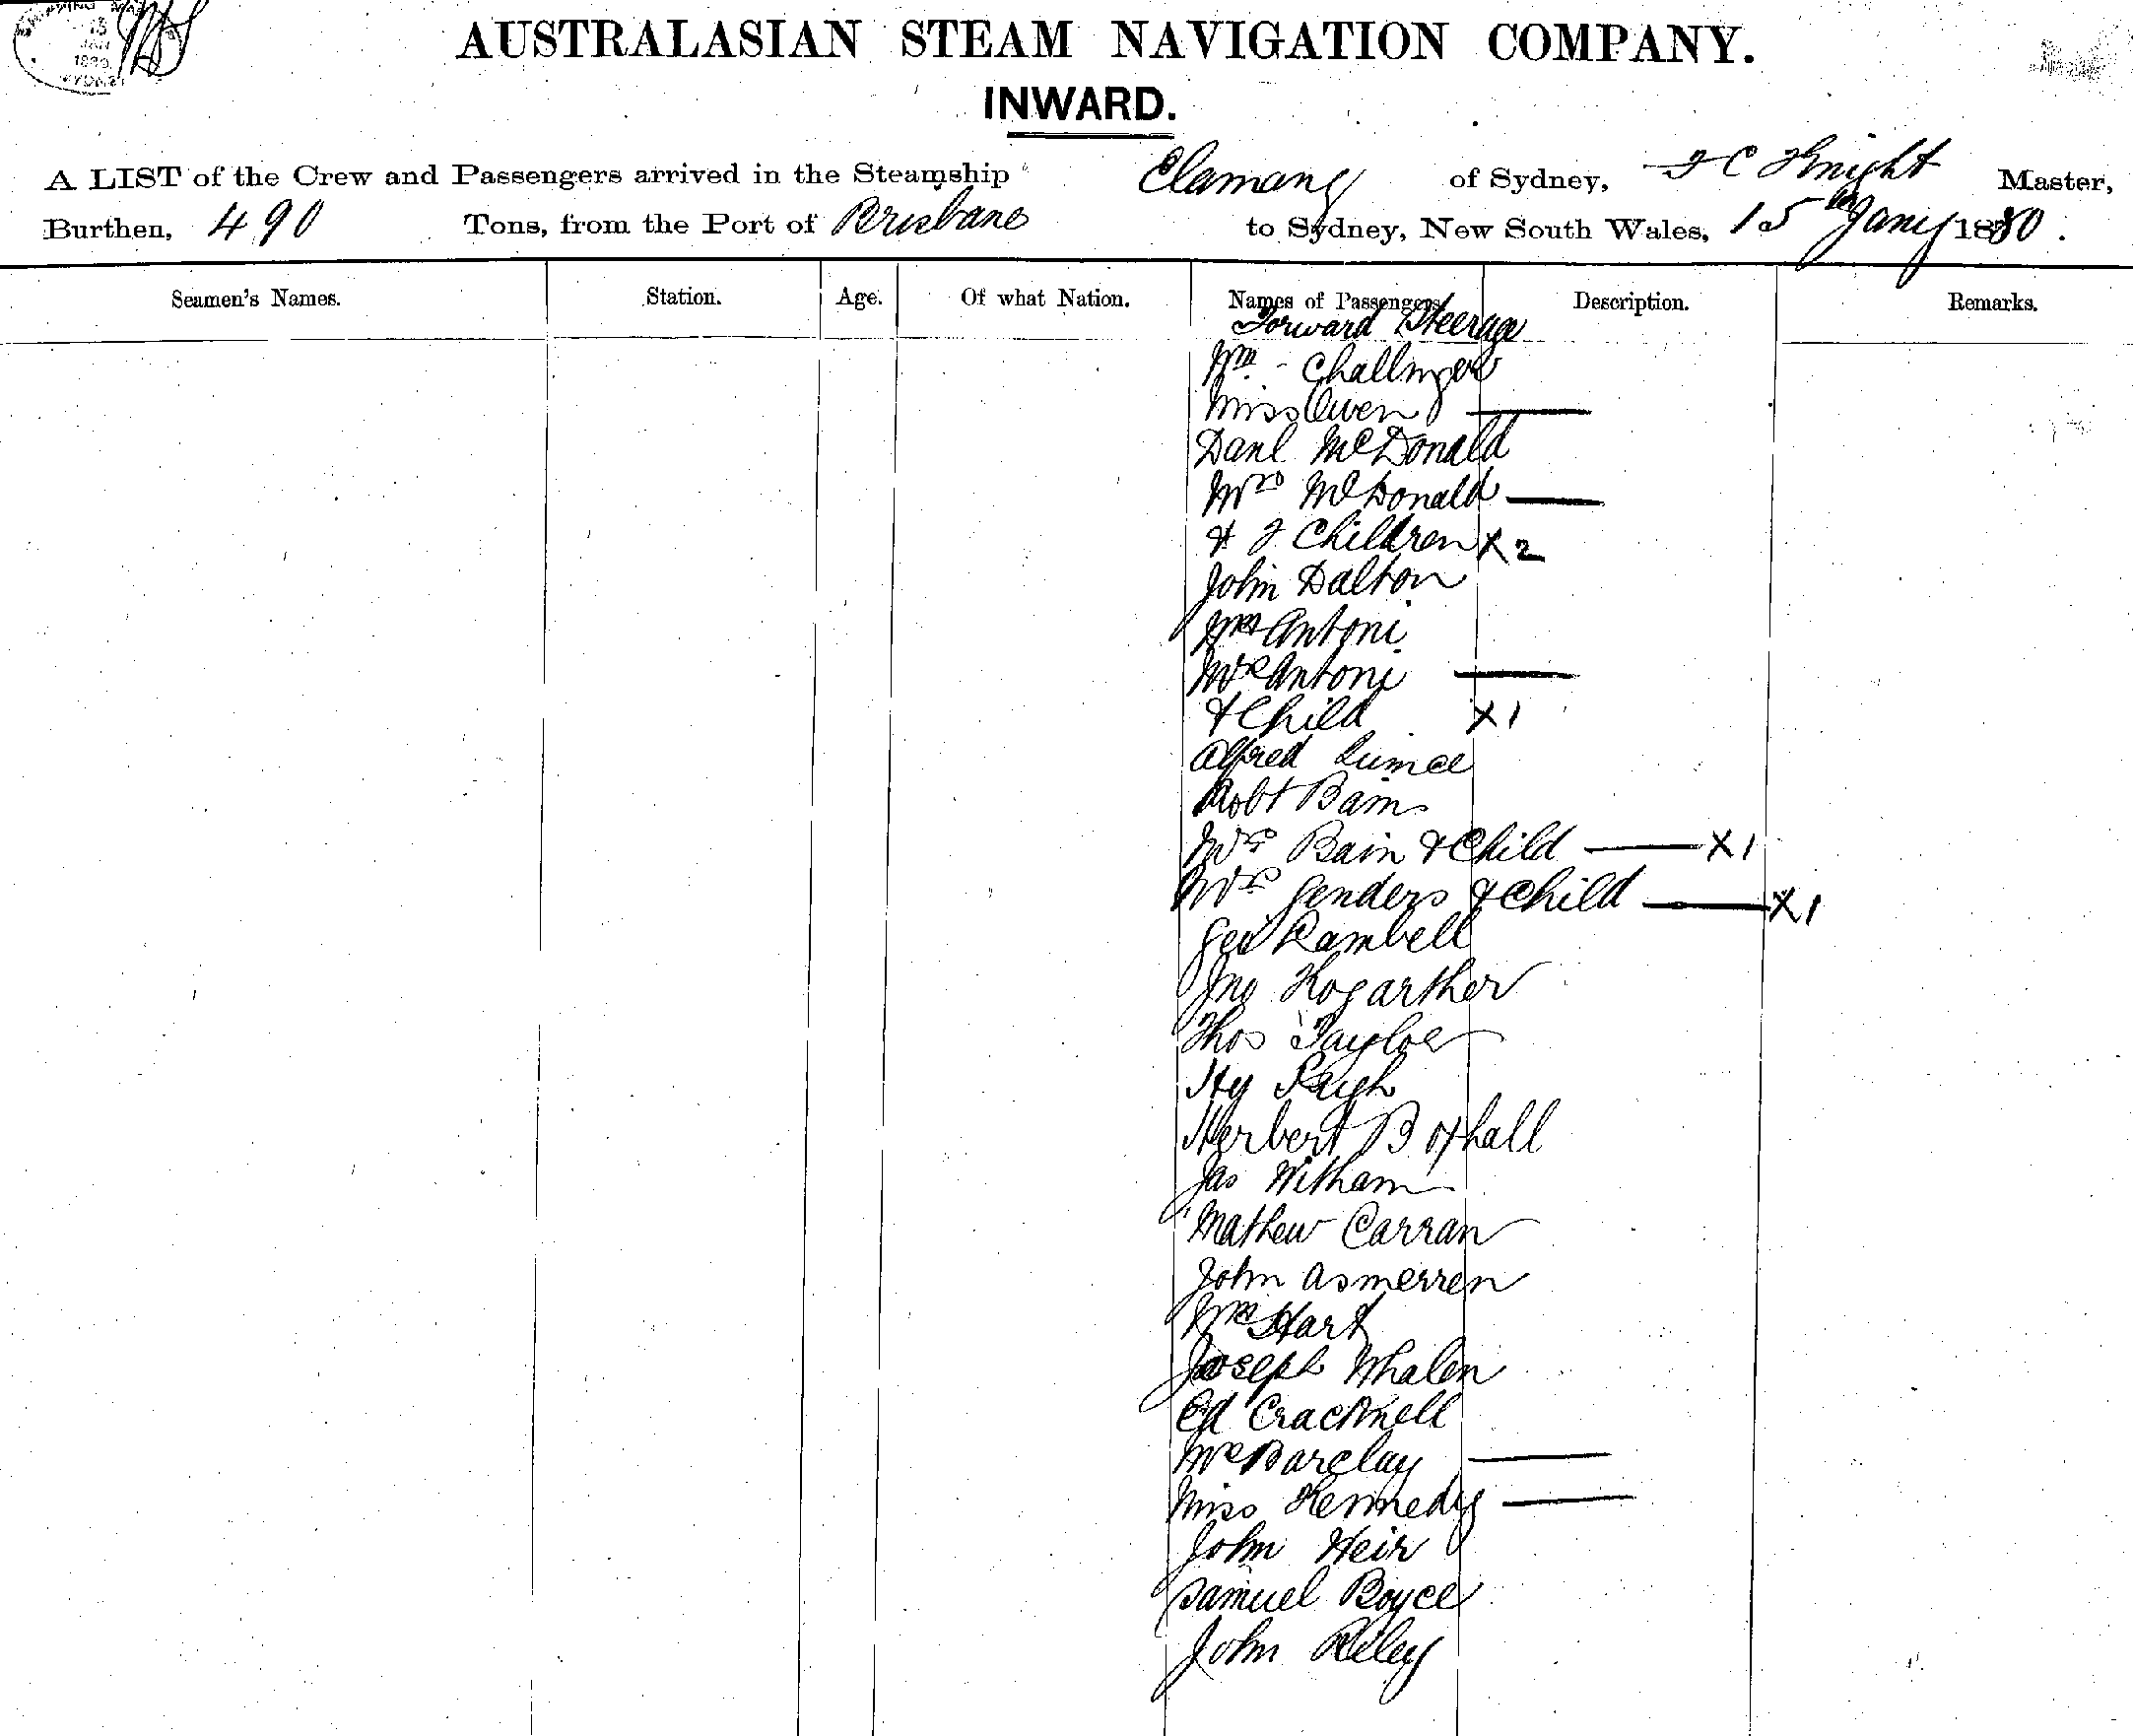 15
JAN
1880
SYDNEY
AUSTRALASIAN STEAM NAVIGATION COMPANY.
INWARD.
A LIST of the Crew and Passengers arrived in the Steamship Elamang of Sydney, F C Knight Master,
Burthen, 490 Tons, from the Port of Brisbane to Sydney, New South Wales, 15th Jany 1880.
Seamen's Names. Station. Age. Of what Nation. Names of Passengers. Description. Remarks.
Forward Steerage
Wm Challinger
Miss Owen
Danl McDonald
Mrs McDonald
& 2 Children X 2
John Dalton
Wm Antoni
Mrs Antoni
& Child X 1
Alfred
Robt Bain
Mrs Bain & Child X 1
Mrs Genders & Child X 1
Geo Rambell
Jno Hogarther
Thos Taylor
Hy
Herbert Boxhall
Jas Witham
Mathew Carran
John Asmerren
Wm Hart
Joseph Whalen
Ed Cracknell
Mrs Barclay
Miss Kennedy
John Heir
Samuel Boyce
John Riley